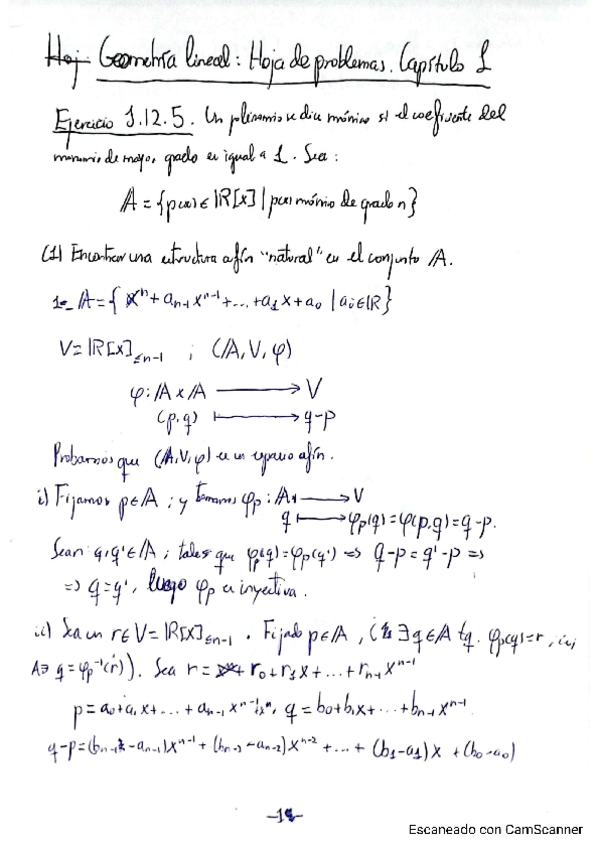 Hoj Geometría lineal: Hoja de problemas. Capítulo 1
Ejercicio 1.12.5. Un polinomio se dice mónico si el coeficiente del
monomio de mayor grado es igual a 1. Sea:
A = {p(x) ∈ IR[x] | p(x) mónico de grado n}
(1) Encontrar una estructura afín "natural" en el conjunto A.
1.- A = { xⁿ + aₙ₋₁xⁿ⁻¹ + ... + a₁x + a₀ | aᵢ ∈ IR }
V = IR[x]≤n-1 ; (A, V, φ)
φ: A x A → V
(p, q) ↦ q-p
Probamos que (A, V, φ) es un espacio afín.
i) Fijamos p ∈ A ; y tomamos φp : A → V
q ↦ φp(q) = φ(p,q) = q-p.
Sean q, q' ∈ A ; tales que φp(q) = φp(q') => q-p = q'-p =>
=> q = q', luego φp es inyectiva.
ii) Sea un r ∈ V = IR[x]≤n-1 . Fijado p ∈ A, ∃ q ∈ A tq. φp(q) = r,
q = φp⁻¹(r)). Sea r = r₀ + r₁x + ... + rₙ₋₁xⁿ⁻¹
p = a₀ + a₁x + ... + aₙ₋₁xⁿ⁻¹ + xⁿ, q = b₀ + b₁x + ... + bₙ₋₁xⁿ⁻¹
q-p = (bₙ₋₁ - aₙ₋₁)xⁿ⁻¹ + (bₙ₋₂ - aₙ₋₂)xⁿ⁻² + ... + (b₁-a₁)x + (b₀-a₀)
Escaneado con CamScanner